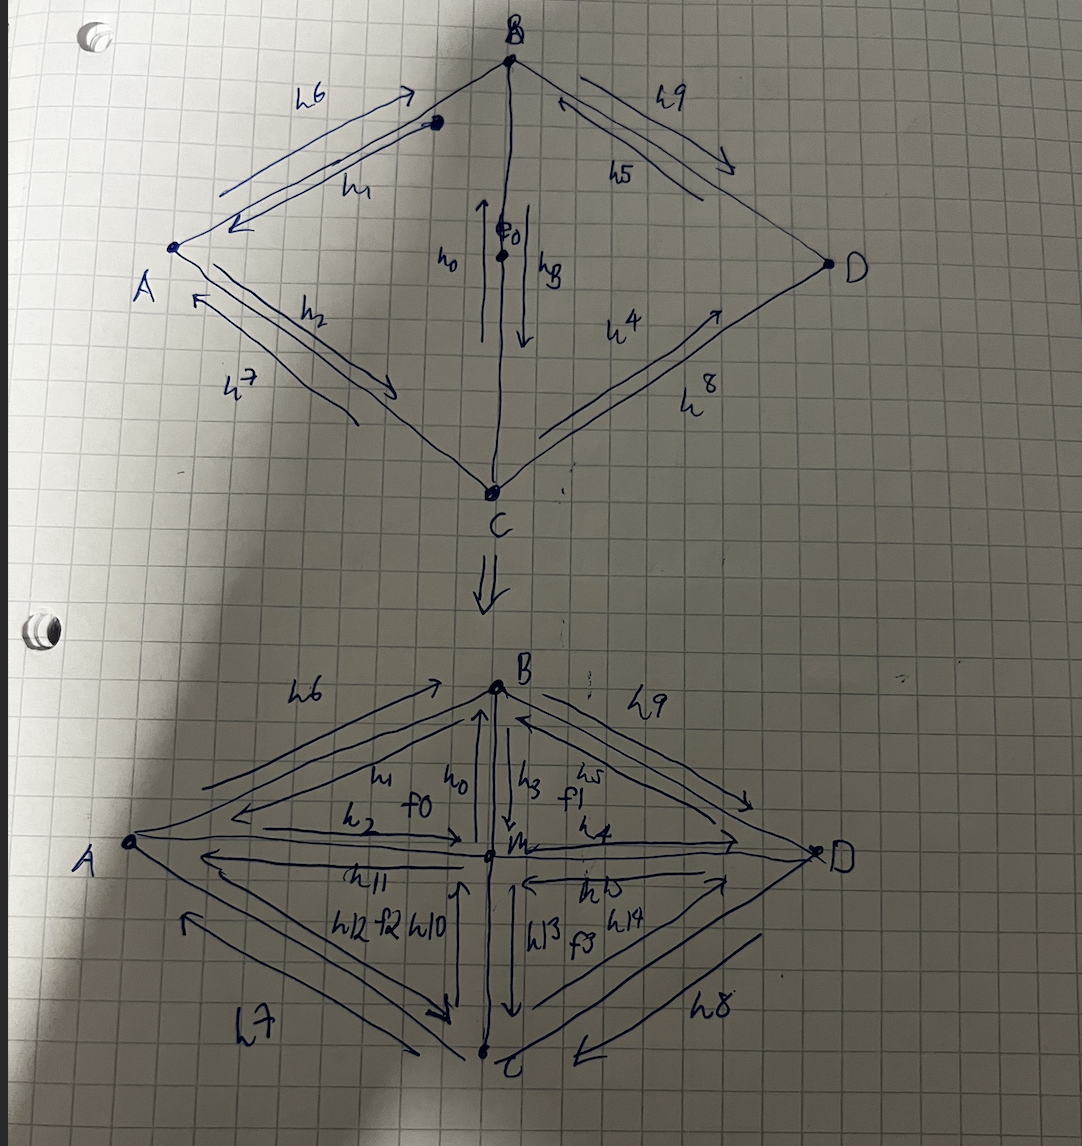 B
h6
h9
h1
h5
e0
h0
h3
A
D
h2
h4
h7
h8
C
B
h6
h9
h1
h0
h3
h5
f0
f1
h2
M
h4
A
D
h11
h15
h12 f2 h10
h13 f3 h14
h7
h8
C